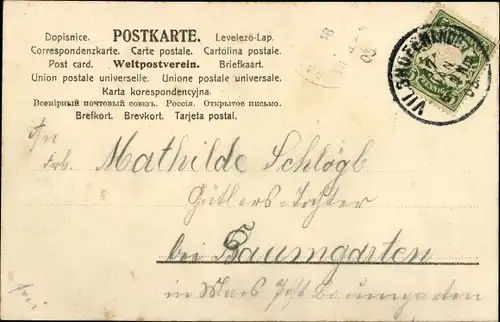 Dopisnice. POSTKARTE. Levelező-Lap.
Correspondenzkarte. Carte postale. Cartolina postale.
Post card. Weltpostverein. Briefkaart.
Union postale universelle. Unione postale universale.
Karta korespondencyjna.
Всемірный почтовый союзъ. Россія. Открытое письмо.
Brefkort. Brevkort. Tarjeta postal.
VILSHOFEN
Frl. Mathilde Schlögl
Gütlers-Tochter
bei Baumgarten
in Post Baumgarten
frei